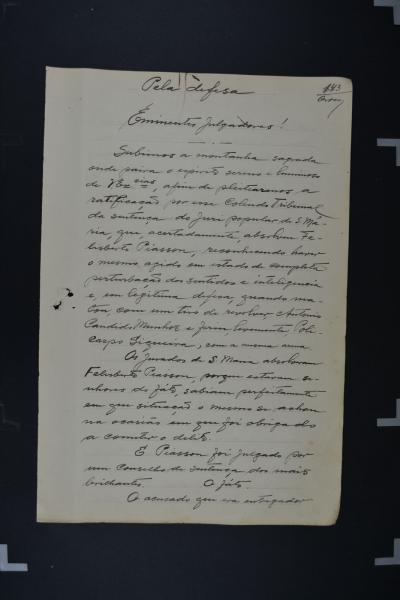 Pela defesa
143
Eminentes Julgadores!
Subimos a montanha sagrada
onde paira o espirito sereno e luminoso
de VEx cias, afim de pleitearmos a
ratificação por esse Colendo Tribunal
da sentença do Juri popular de S. Ma-
ria, que, acertadamente, absolveu Fe-
lisberto Piasson, reconhecendo haver
o mesmo agido em estado de completa
perturbação dos sentidos e inteligencia
e, em legitima defesa, quando ma-
tou, com um tiro de revolver Antonio
Candido e feriu levemente, Poli-
carpo Siqueira, com a mesma arma
Os Jurados de S. Maria absolveram
Felisberto Piasson, porque estavam se-
nhores do fáto, sabiam perfeitamente
em que situação o mesmo se achou
na ocasião em que foi obrigado
a cometer o delito.
E Piasson foi julgado por
um conselho de sentença dos mais
brilhantes. O fáto.
O acusado que era entregador